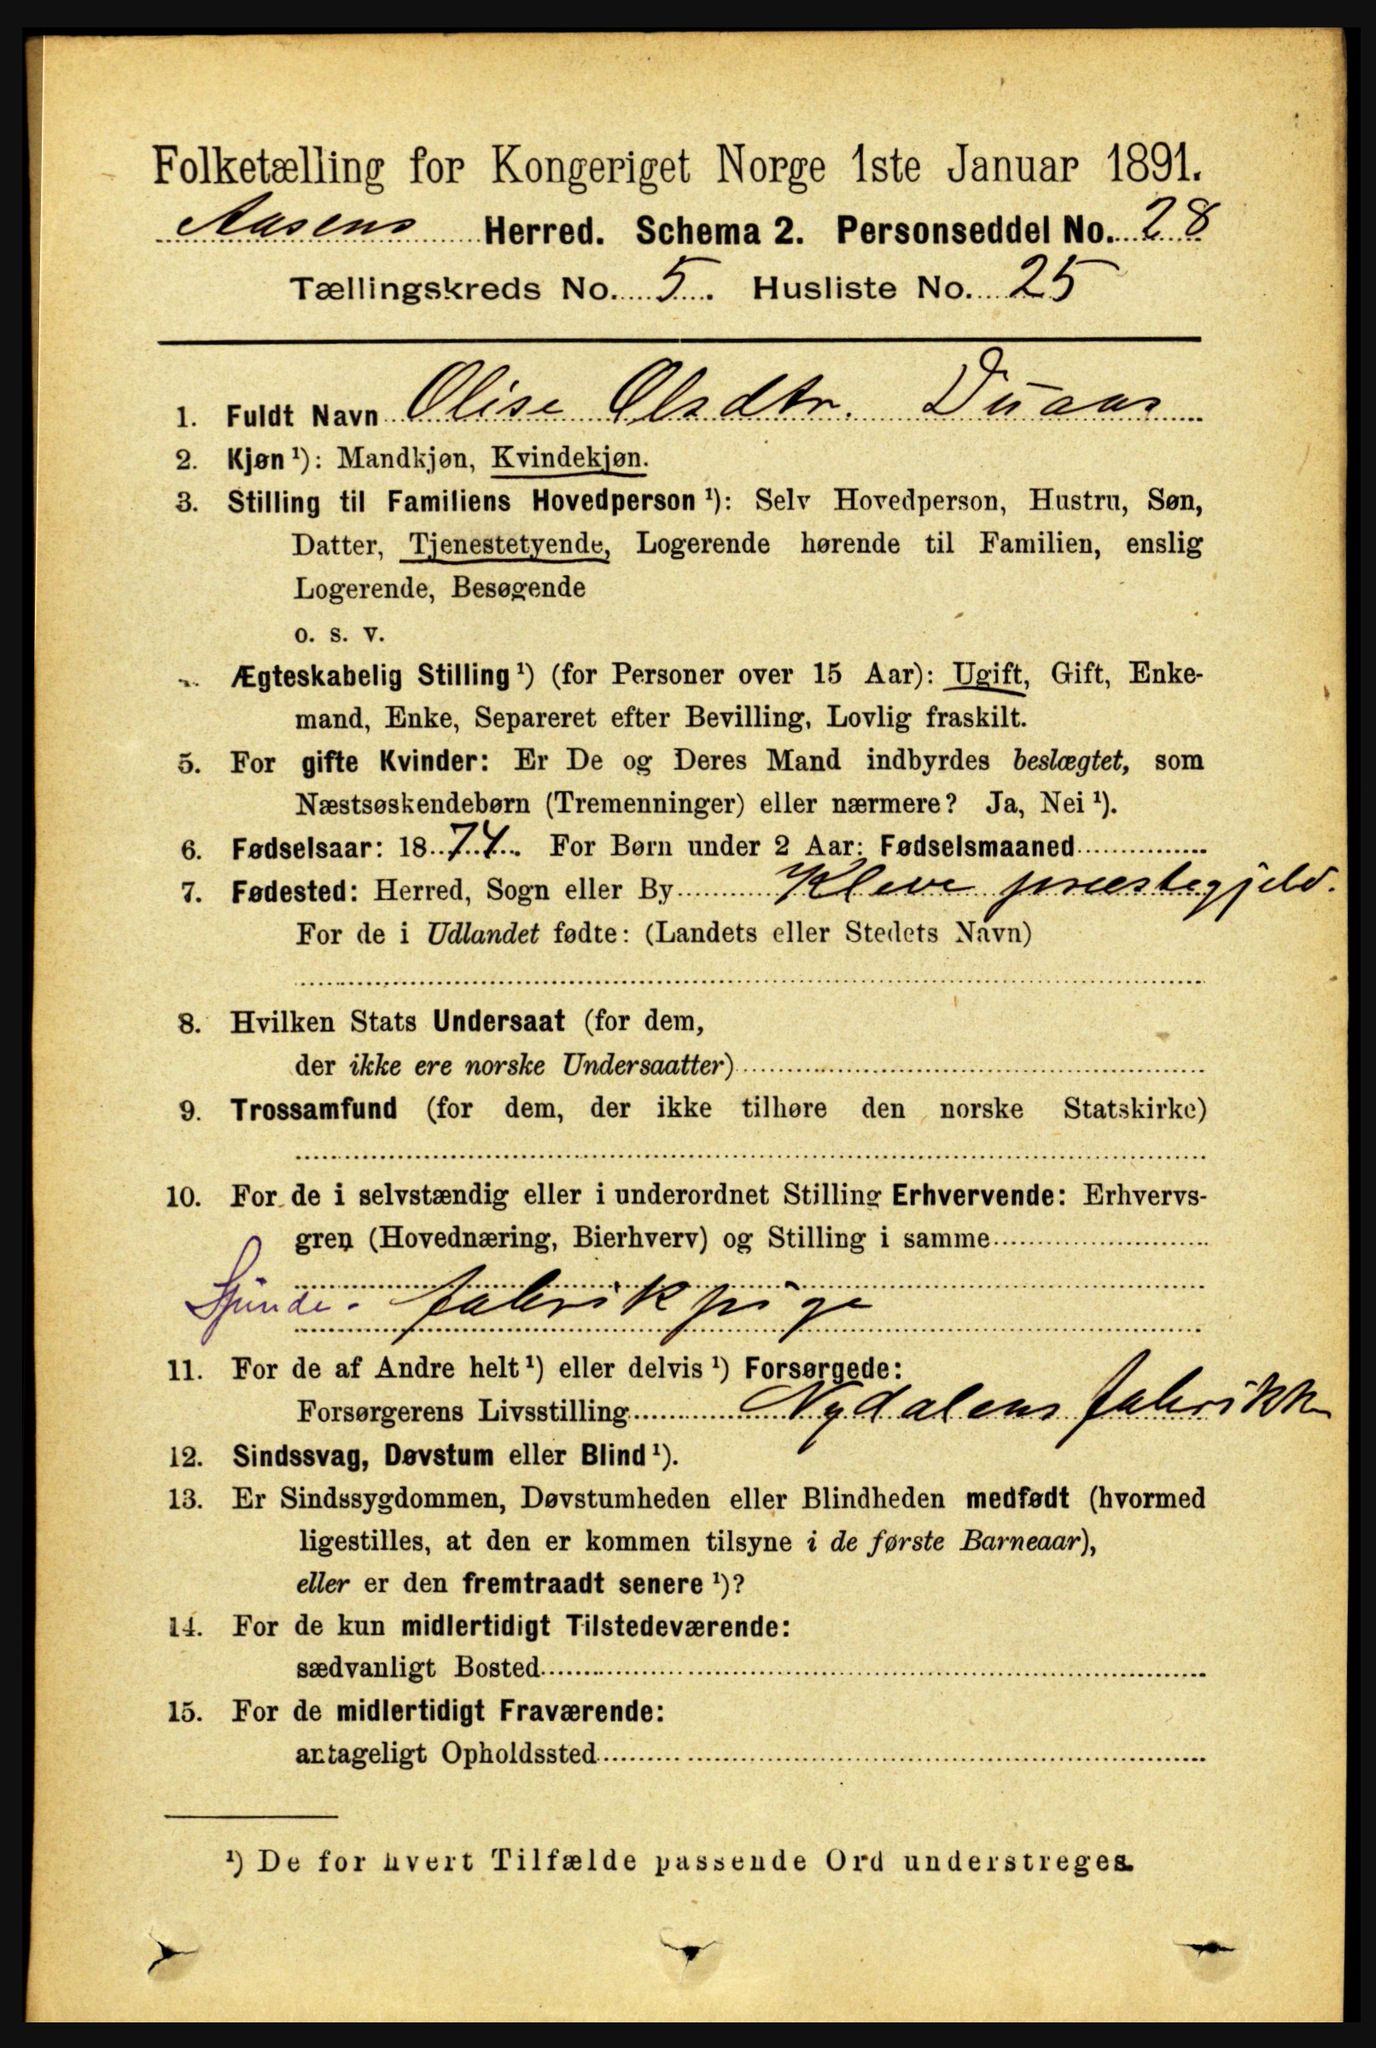 Folketælling for Kongeriget Norge 1ste Januar 1891.
Aasens Herred. Schema 2. Personseddel No. 28
Tællingskreds No. 5. Husliste No. 25
1. Fuldt Navn Olise Olsdtr. Duaas
2. Kjøn ¹): Mandkjøn, Kvindekjøn.
3. Stilling til Familiens Hovedperson ¹): Selv Hovedperson, Hustru, Søn,
Datter, Tjenestetyende, Logerende hørende til Familien, enslig
Logerende, Besøgende
o. s. v.
Ægteskabelig Stilling ¹) (for Personer over 15 Aar): Ugift, Gift, Enke-
mand, Enke, Separeret efter Bevilling, Lovlig fraskilt.
5. For gifte Kvinder: Er De og Deres Mand indbyrdes beslægtet, som
Næstsøskendebørn (Tremenninger) eller nærmere? Ja, Nei ¹).
6. Fødselsaar: 1874. For Børn under 2 Aar: Fødselsmaaned
7. Fødested: Herred, Sogn eller By Kleve præstegjeld.
For de i Udlandet fødte: (Landets eller Stedets Navn)
8. Hvilken Stats Undersaat (for dem,
der ikke ere norske Undersaatter)
9. Trossamfund (for dem, der ikke tilhøre den norske Statskirke)
10. For de i selvstændig eller i underordnet Stilling Erhvervende: Erhvervs-
gren (Hovednæring, Bierhverv) og Stilling i samme
fabrikpige
11. For de af Andre helt ¹) eller delvis ¹) Forsørgede:
Forsørgerens Livsstilling Nydalens fabrikk
12. Sindssvag, Døvstum eller Blind ¹).
13. Er Sindssygdommen, Døvstumheden eller Blindheden medfødt (hvormed
ligestilles, at den er kommen tilsyne i de første Barneaar),
eller er den fremtraadt senere ¹)?
14. For de kun midlertidigt Tilstedeværende:
sædvanligt Bosted
15. For de midlertidigt Fraværende:
antageligt Opholdssted
¹) De for hvert Tilfælde passende Ord understreges.